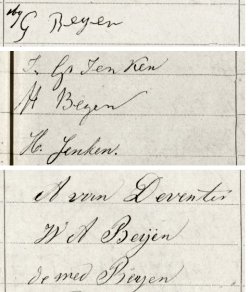 G Beyen
J. Gs Jenken
H Beyen
H. Jenken.
A van Deventer
W A Beijen
de wed Beijen